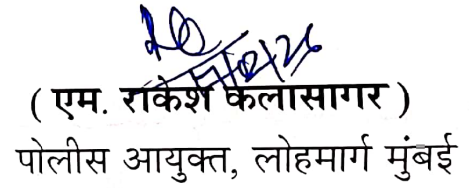 ( एम. राकेश कलासागर )
पोलीस आयुक्त, लोहमार्ग मुंबई